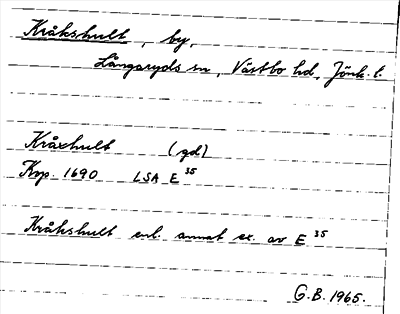 Kråkshult, by,
Långaryds sn, Västbo hd, Jönk. l.
Kråxhult (gd)
Krp. 1690 LSA E 35
Kråkshult enl. annat ex. av E 35
G.B. 1965.